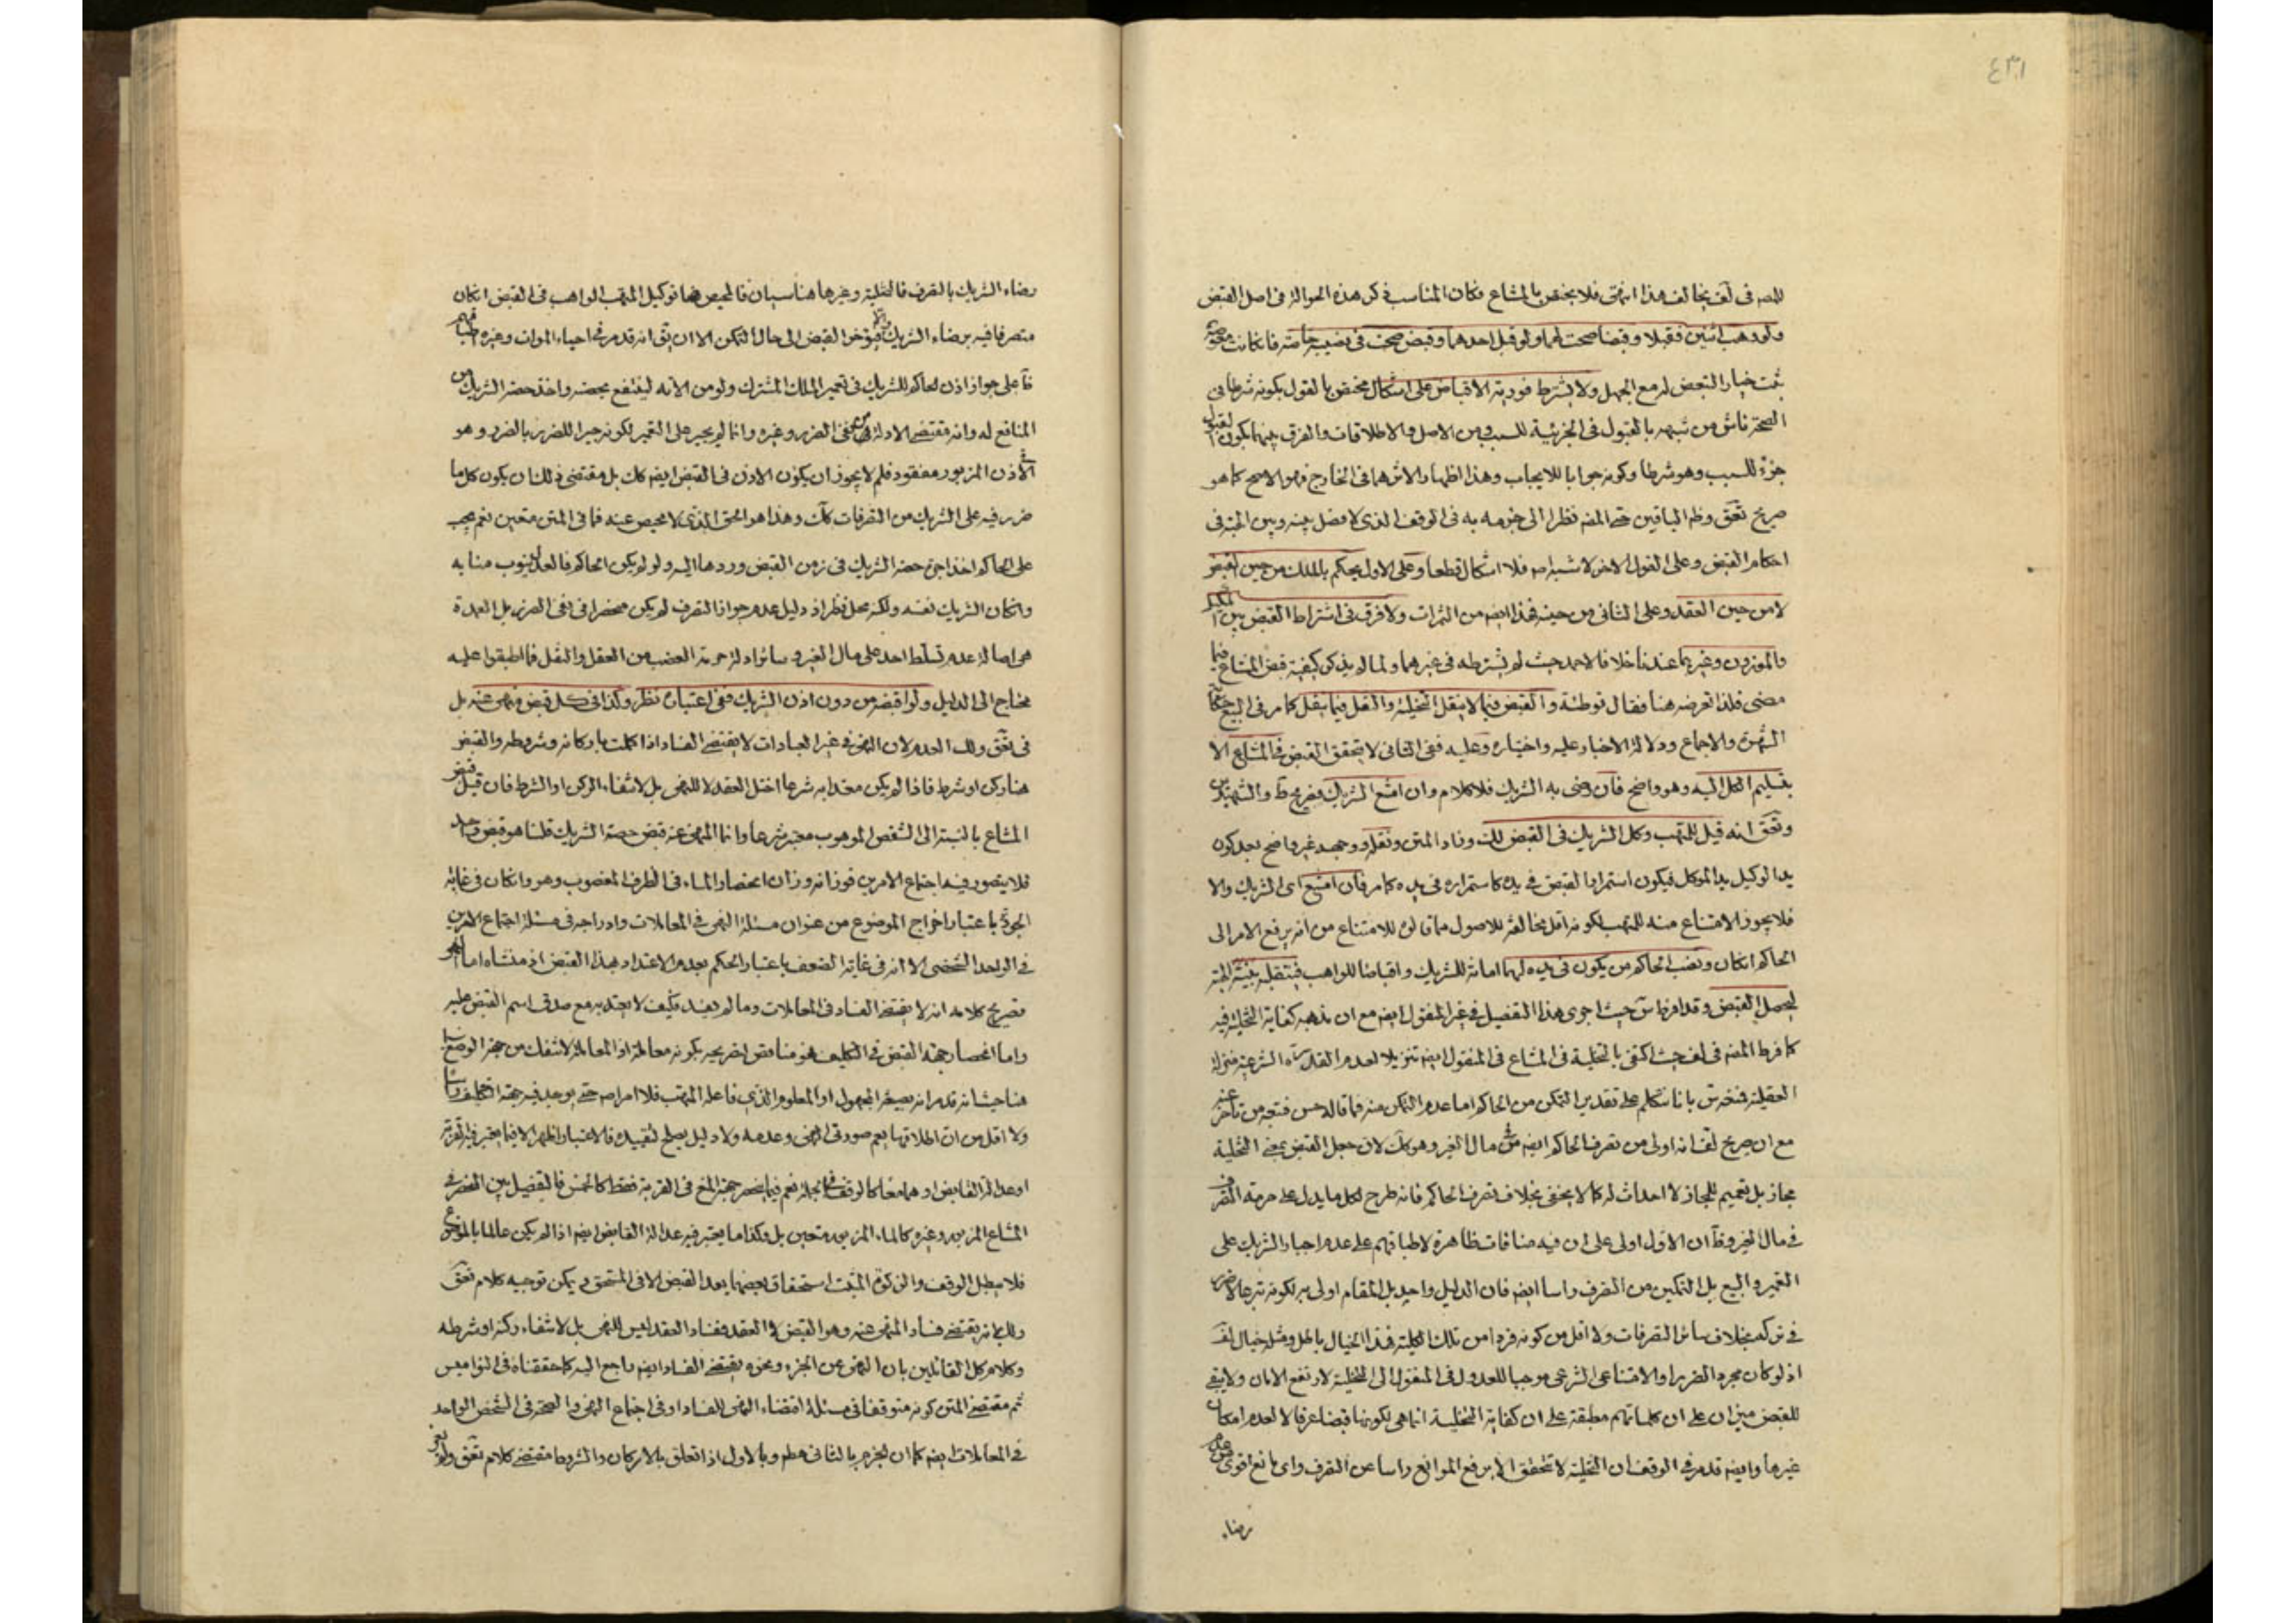 ٤٣١
للمصـ في لف يخالف هذا انتهى فلا يختص بالمشاع فكان المناسب ذكر هذه الحوالة في اصل القبض
ولو وهب اثنين فقبلا وقبضا صحت لهما ولو قبل احدهما وقبض صحت في نصيبه خاصة فان كانت معوضة
ثبت خيار التبعض له مع الجهل ولا يشترط فورية الاقباض على اشكال مختص بالقول بكونه شرطا في
الصحة ناش من شبهه بالقبول في الجزئية للسبب ومن الاصل والاطلاقات والفرق بينهما بكون القبول
جزء للسبب وهو شرطا وكونه جوابا للايجاب وهذا اظهار والاثر هما في الخارج فهو الاصح كما هو
صريح تحقق وظم الباقين حتى المصـ نظرا الى جزمه به في الوقف الذي لا فصل بينه وبين الهبة في
احكام القبض وعلى القول الاخر لا شبهة فلا اشكال قطعا وعلى الاول يحكم بالملك من حين القبض
لا من حين العقد وعلى الثاني من حينه فهذا ايضـ من الثمرات ولا فرق في اشتراط القبض بين المكيل
والموزون وغيرهما عندنا خلافا لاحمد حيث لم يشترطه في غيرهما ولما لم يذكر كيفية قبض المشاع فيما
مضى فلذا تعرضه هنا فقال توطئة والقبض فيما لا ينقل التخلية والنقل فيما ينقل كما مر في البيع
الشهرة والاجماع ودلالة الاخبار عليه واختياره وعليه ففي الثاني لا يتحقق القبض في المشاع الا
بتسليم الكل اليه وهو واضح فان رضى به الشريك فلا كلام وان امتنع الشريك فصريح ط والشهيدين
وتحقق انه قيل للمتهب وكل الشريك في القبض لك وزاد المتن ونقله ووجهه غير واضح بعد كون
يد الوكيل يد الموكل فيكون استمرار القبض في يده كاستمراره في يده كما مر فان امتنع اي الشريك والا
فلا يجوز الامتناع منه للمتهب لكونه اقل مخالفة للاصول مما قالوه للامتناع من انه يرفع الامر الى
الحاكم ان كان ونصب الحاكم من يكون في يده لهما امانة للشريك واقباضا للواهب فينقله بنية الهبة
ليحصل القبض وقد افرط س حيث اجرى هذا التفصيل في غير المنقول ايضـ مع ان مذهبه كفاية التخلية فيه
كما فرط المصـ في لف حيث اكتفى بالتخلية في المشاع في المنقول ايضـ تنزيلا لعدم القدرة الشرعية منزلة
العقلية فنخدش بانا نتكلم على تقدير التمكن من الحاكم اما عدم التمكن منه فما قاله حسن فتبعه من تاخر عنه
مع ان صريح لف انه اولى من تصرف الحاكم ايضـ في مال الغير وهو كك لان جعل القبض بمعنى التخلية
مجاز بل تعميم للمجاز لا احداث له كما لا يخفى بخلاف تصرف الحاكم فانه طرح لكل ما يدل على حرمة التصرف
في مال الغير وظ ان الاول اولى على ان فيه منافات ظاهرة لاطباقهم على عدم اجبار الشريك على
التعمير والبيع بل التمكين من التصرف راسا ايضـ فان الدليل واحد بل المقام اولى به لكونه تبرعا لا ضرر
في تركه بخلاف سائر التصرفات ولا اقل من كونه فردا من تلك الكلية فهذا الخيال باطل ومثله خيال لف
اذ لو كان مجرد الضرر او الامتناع الشرعي موجبا للعدول في المنقول الى التخلية لارتفع الامان ولا يبقى
للقبض ميزان على ان كلماتهم مطبقة على ان كفاية التخلية انما هي لكونها قبضا عرفا لا لعدم امكان
غيرها وايضـ قد مر في الوقف ان التخلية لا تتحقق الا برفع الموانع راسا عن التصرف واي مانع اقوى من عدم
رضاء
رضاء الشريك بالتصرف فالتخلية وغيرها هنا سيان فالمحيص هنا توكيل المتهب الواهب في القبض ان كان
متصرفا فيه برضاء الشريك والا فيؤخر القبض الى حال التمكن الا ان يق انه قد مر في احياء الموات وغيره اطباقهم
ظاهرا على جواز اذن الحاكم للشريك في تعمير الملك المشترك ولو من الاته لينتفع بحصته واخذ حصة الشريك من
المنافع له وانه مقتضى الادلة في نفى الضرر وغيره وانما لم يجبر على التعمير لكونه جبرا للضرر بالضرر وهو في
الاذن المزبور مفقود فلم لا يجوز ان يكون الاذن في القبض ايضـ كك بل مقتضى ذلك ان يكون كل ما لا
ضرر فيه على الشريك من التصرفات كك وهذا هو الحق الذي لا محيص عنه فما في المتن متعين نعم يجب
على الحاكم اخذ اجرة حصة الشريك في زمن القبض وردها اليه ولو لم يكن الحاكم فالعدل ينوب منابه
وان كان الشريك نفسه ولكنه محل نظر اذ دليل عدم جواز التصرف لم يكن منحصرا في نفى الضرر بل العمدة
هي اصالة عدم تسلط احد على مال الغير وسائر ادلة حرمة الغصب من العقل والنقل فما اطبقوا عليه
محتاج الى الدليل ولو اقبضه من دون اذن الشريك ففي اعتباره نظر وكذا في كل قبض منهي عنه بل
في تحقق وذلك العدم لان النهي في غير العبادات لا يقتضي الفساد اذا كملت باركانه وشروطه والقبض
هنا ركن او شرط فاذا لم يكن معتدا به شرعا اختل العقد لا للنهي بل لانتفاء الركن او الشرط فان قيل قبض
المشاع بالنسبة الى الشقص الموهوب معتبر شرعا وانما المنهي عنه قبض حصة الشريك قلنا هو قبض واحد
فلا يتصور فيه اجتماع الامرين فوزانه وزان انحصار الماء في الظرف المغصوب وهو وان كان في غاية
الجودة باعتبار اخراج الموضوع من عنوان مسئلة النهي في المعاملات وادراجه في مسئلة اجتماع الامرين
في الواحد الشخصي الا انه في غاية الضعف باعتبار الحكم بعدم الاعتداد بهذا القبض اذ منشاه اما النهي
فصريح كلامه انه لا يقتضي الفساد في المعاملات وما لم يفسد فكيف لا يعتد به مع صدق اسم القبض عليه
واما انحصار جهة القبض في التكليف فهو مناقض لتصريحه بكونه معاملة اذ المعاملة لا تنفك من جهة الوضع سيما
هنا حيث انه قد مر انه بصيغة المجهول او المعلوم الذي فاعله المتهب فلا امر اصـ حتى يوجد فيه جهة التكليف راسا
ولا اقل من ان اطلاقها يعم صورتي النهي وعدمه ولا دليل يصلح لتقييده فالاعتبار اظهر الا فيما يعتبر فيه القربة
او عدالة القابض او هما معا كالوقف في الجملة نعم فيما ينحصر جهة المنع في القربة فقط كالخمس فالتفصيل بين المنحصر في
المشاع المزبور وغيره كالماء المزبور متعين بل وكذا ما يعتبر فيه عدالة القابض ايضـ اذا لم يكن عالما بالموضوع
فلا يبطل الوقف والزكوة المثبت استحقاق بعضهما بعد القبض الا في المستحق ويمكن توجيه كلام تحقق
وذلك بانه يقتضي فساد المنهي عنه وهو القبض لا العقد ففساد العقد ليس للنهي بل لانتفاء ركنه او شرطه
وكلام كل القائلين بان النهي عن الجزء ونحوه يقتضي الفساد ايضـ راجع اليه كما حققناه في النواميس
ثم مقتضى المتن كونه متوقفا في مسئلة اقتضاء النهي للفساد او في اجتماع النهي والصحة في الشخص الواحد
في المعاملات ايضـ كما ان الجزم بالثاني مطـ وبالاول اذا تعلق بالاركان والشروط مقتضى كلام تحقق